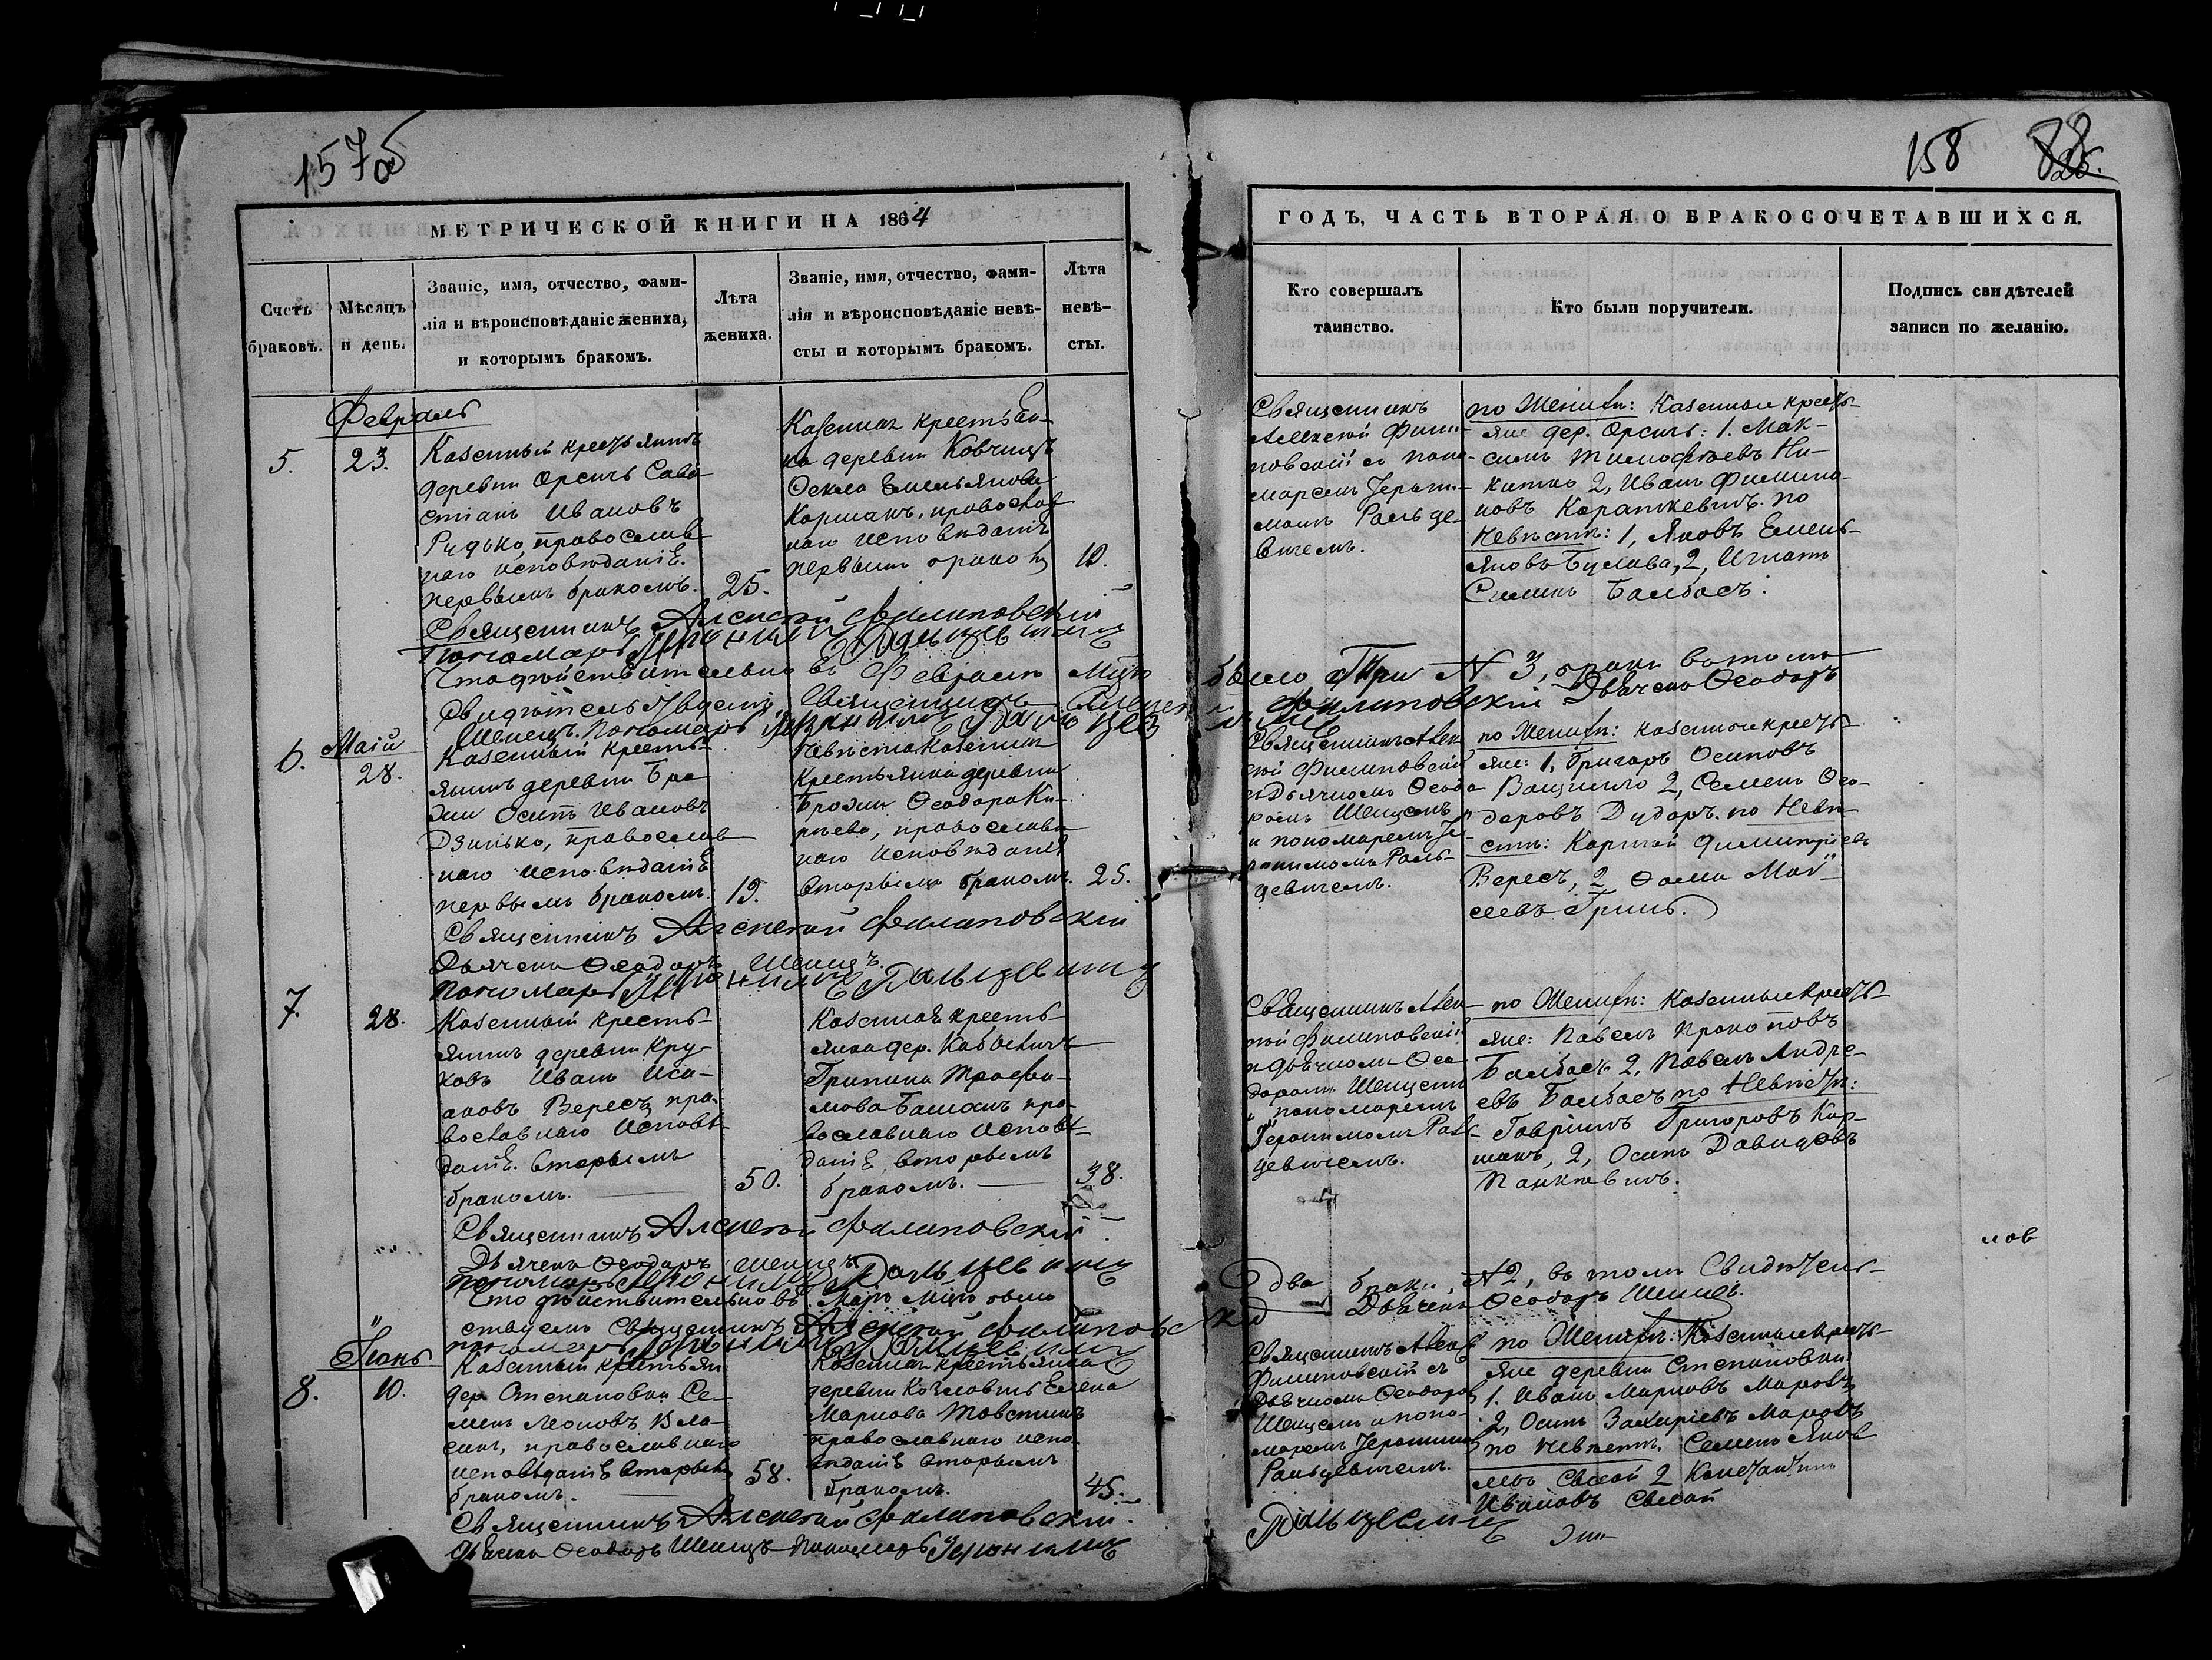 157 об
МЕТРИЧЕСКОЙ КНИГИ НА 1864
Счетъ браковъ.
Мѣсяцъ и день.
Званіе, имя, отчество, фами-
лія и вѣроисповѣданіе жениха,
и которымъ бракомъ.
Лѣта
жениха.
Званіе, имя, отчество, фами-
лія и вѣроисповѣданіе невѣ-
сты и которымъ бракомъ.
Лѣта
невѣ-
сты.
Февраль
5.
23.
Казенный крестьянинъ
деревни Орсичъ Сава-
стіанъ Ивановъ
Рудько, православ
наго исповѣданіе.
первымъ бракомъ.
25.
Казенная крестьян-
ка деревни Ковчицъ
Ѳекла Емельянова
Коршакъ, православ
наго исповѣданіе
первымъ бракомъ
19.
Священникъ Алексѣй Филиповскій
Пономарь Іеронимъ Ральцевичъ
Что дѣйствительно въ Февралѣ мѣцѣ
Священникъ
Шенецъ. Пономарь Іеронимъ Ральцев
6.
Маій
28.
Казенный кресть-
янинъ деревни Бро
жи Осипъ Ивановъ
Дзинько, православ
наго исповѣданіе
первымъ бракомъ.
19.
Невѣста казенная
крестьянка деревни
Брожи Ѳеодора Ки-
рѣева, православ
наго исповѣданіе
вторымъ бракомъ.
25.
Священникъ Алексѣй Филиповскій
Дьячекъ Ѳеодоръ Шенецъ.
Пономарь Іеронимъ Ральцевичъ
7.
28.
Казенный кресть-
янинъ деревни Кру-
ковъ Иванъ Иса-
аковъ Вересъ, пра-
вославнаго исповѣ-
даніе. вторымъ
бракомъ.
50.
Казенная кресть-
янка дер.
Грипина Трофи-
мова Башанъ, пра-
вославнаго исповѣ-
даніе, вторымъ
бракомъ.
38.
Священникъ Алексѣй Филиповскій
Дьячекъ Ѳеодоръ Шенецъ
Пономарь Іеронимъ Ральцевичъ
Что дѣйствительно въ Маѣ мѣцѣ было
ствуемъ Священникъ Алексѣй Филиповскій
пономарь Іеронимъ Ральцевичъ
Іюнь
8.
10.
Казенный крестьян
дер. Степановки Се-
менъ Леоновъ Вла-
сикъ, православнаго
исповѣданіе вторымъ
бракомъ.
58.
Казенная крестьянка
деревни Козловичъ Елена
Маркова Товстикъ
православнаго испо-
вѣданіе вторымъ
бракомъ.
45.
Священникъ Алексѣй Филиповскій.
Дьячекъ Ѳеодоръ Шенецъ Пономарь Іеронимъ
158
88
ГОДЪ, ЧАСТЬ ВТОРАЯ О БРАКОСОЧЕТАВШИХСЯ.
Кто совершалъ
таинство.
Кто были поручители.
Подпись свидѣтелей
записи по желанію.
Священникъ
Алексѣй Фили-
повскій съ поно-
маремъ Іерони-
момъ Ральце-
вичемъ.
по Женихѣ: Казенные кресть-
яне дер. Орсичъ: 1. Мак-
симъ Тимофѣевъ Ни-
китко 2, Иванъ Филипо-
новъ Кораткевичъ. по
Невѣстѣ: 1, Яковъ Емель-
яновъ Булава, 2, Игнатъ
Симонъ Балбасъ.
было Три N 3, браки въ томъ
Филиповскій Дьячекъ Ѳеодоръ
Священникъ Алек
сѣй Филиповскій
съ Дьячкомъ Ѳеодо
ромъ Шенцемъ
и пономаремъ Іе-
ронимомъ Раль-
цевичемъ.
по Женихѣ: казенные кресть
яне: 1, Григоръ Осиповъ
Ващилло 2, Семенъ Ѳео-
доровъ Дударъ. по Невѣ-
стѣ: Карпъ Димитріевъ
Вересъ, 2 Ѳома Мой-
сеевъ Гринь.
Священникъ Алек-
сѣй Филиповскій
и дьячкомъ Ѳео
доромъ Шенцемъ
и пономаремъ
Іеронимомъ Раль-
цевичемъ.
по Женихѣ: Казенные кресть-
яне: Павелъ Прокоповъ
Балбасъ 2, Павелъ Андре-
евъ Балбасъ по Невѣстѣ:
Гавріилъ Григоровъ Кор-
шакъ, 2, Осипъ Давидовъ
Панкевичъ.
Два браки, N 2, въ томъ Свидѣтель-
Дьячекъ Ѳеодоръ Шенецъ.
Священникъ Алексѣй
Филиповскій съ
Дьячкомъ Ѳеодоромъ
Шенцемъ и поно-
маремъ Іеронимомъ
Ральцевичемъ.
по Женихѣ: Казенные кресть-
яне деревни Степановки
1. Иванъ Марковъ
2, Осипъ Захаріевъ
по невѣстѣ. Семенъ Яков
левъ 2 Константинъ
Ивановъ
Ральцевичъ